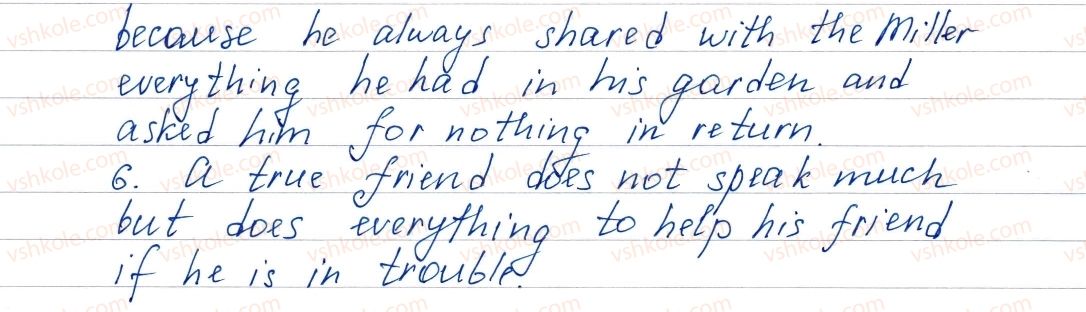 because he always shared with the Miller
everything he had in his garden and
asked him for nothing in return.
6. A true friend does not speak much
but does everything to help his friend
if he is in trouble.